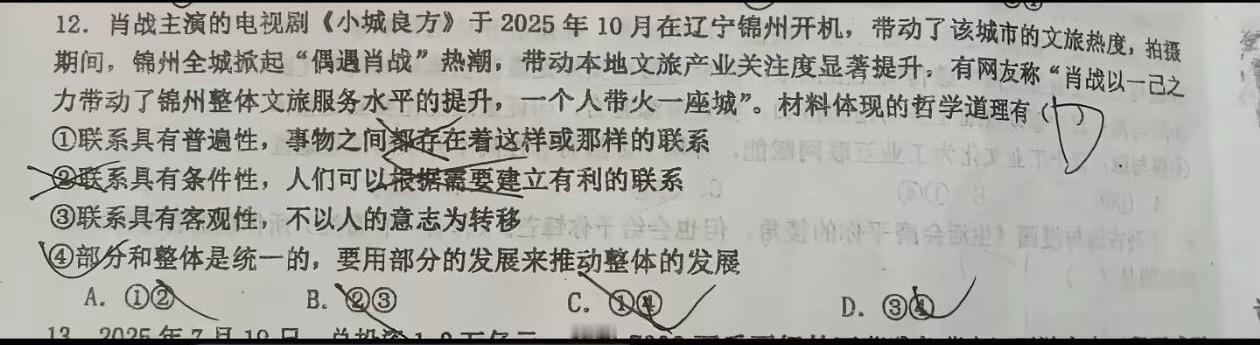 12. 肖战主演的电视剧《小城良方》于 2025 年 10 月在辽宁锦州开机，带动了该城市的文旅热度，拍摄
期间，锦州全城掀起“偶遇肖战”热潮，带动本地文旅产业关注度显著提升，有网友称“肖战以一己之
力带动了锦州整体文旅服务水平的提升，一个人带火一座城”。材料体现的哲学道理有（D）
①联系具有普遍性，事物之间都存在着这样或那样的联系
②联系具有条件性，人们可以根据需要建立有利的联系
③联系具有客观性，不以人的意志为转移
④部分和整体是统一的，要用部分的发展来推动整体的发展
A. ①② B. ②③ C. ①④ D. ③④
13. 2025 年 7 月 19 日